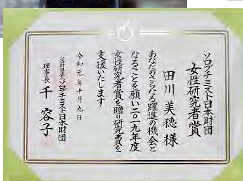 ソロプチミスト日本財団
女性研究者賞
田川美穂様
あなたのさらなる躍進の機会と
なることを願い二〇一九年度
女性研究者賞を贈り研究費を
支援いたします
令和元年十月九日
ソロプチミスト日本財団
理事長 千容子